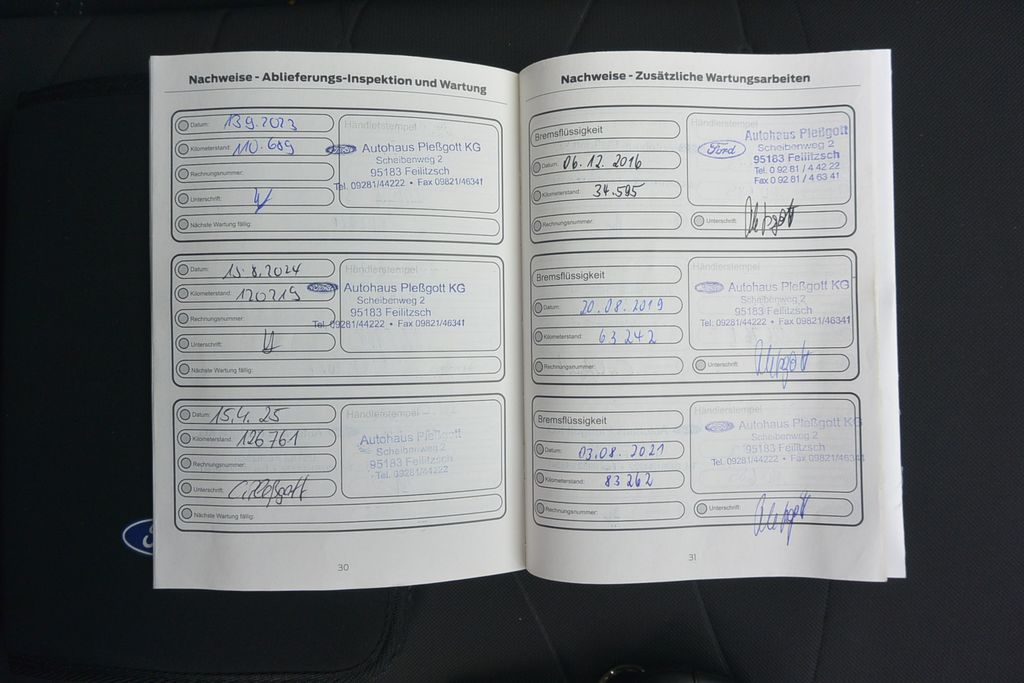 Nachweise - Ablieferungs-Inspektion und Wartung
Datum: 13.9.2023
Kilometerstand: 110.689
Rechnungsnummer:
Unterschrift:
Nächste Wartung fällig:
Händlerstempel
Autohaus Pleßgott KG
Scheibenweg 2
95183 Feilitzsch
Tel. 09281/44222 • Fax 09821/46341
Datum: 15.8.2024
Kilometerstand: 120219
Rechnungsnummer:
Unterschrift:
Nächste Wartung fällig:
Händlerstempel
Autohaus Pleßgott KG
Scheibenweg 2
95183 Feilitzsch
Tel. 09281/44222 • Fax 09821/46341
Datum: 15.4.25
Kilometerstand: 126761
Rechnungsnummer:
Unterschrift: C. Pleßgott
Nächste Wartung fällig:
Händlerstempel
Autohaus Pleßgott
Scheibenweg 2
95183 Feilitzsch
Tel. 09281/44222
30
Nachweise - Zusätzliche Wartungsarbeiten
Bremsflüssigkeit
Datum: 06.12.2016
Kilometerstand: 34.595
Rechnungsnummer:
Händlerstempel
Ford
Autohaus Pleßgott
Scheibenweg 2
95183 Feilitzsch
Tel. 0 92 81 / 4 42 22
Fax 0 92 81 / 4 63 41
Unterschrift: Pleßgott
Bremsflüssigkeit
Datum: 20.08.2019
Kilometerstand: 63242
Rechnungsnummer:
Händlerstempel
Autohaus Pleßgott KG
Scheibenweg 2
95183 Feilitzsch
Tel. 09281/44222 • Fax 09821/46341
Unterschrift: Pleßgott
Bremsflüssigkeit
Datum: 03.08.2021
Kilometerstand: 83262
Rechnungsnummer:
Händlerstempel
Autohaus Pleßgott KG
Scheibenweg 2
95183 Feilitzsch
Tel. 09281/44222 • Fax 09821/46341
Unterschrift: Pleßgott
31